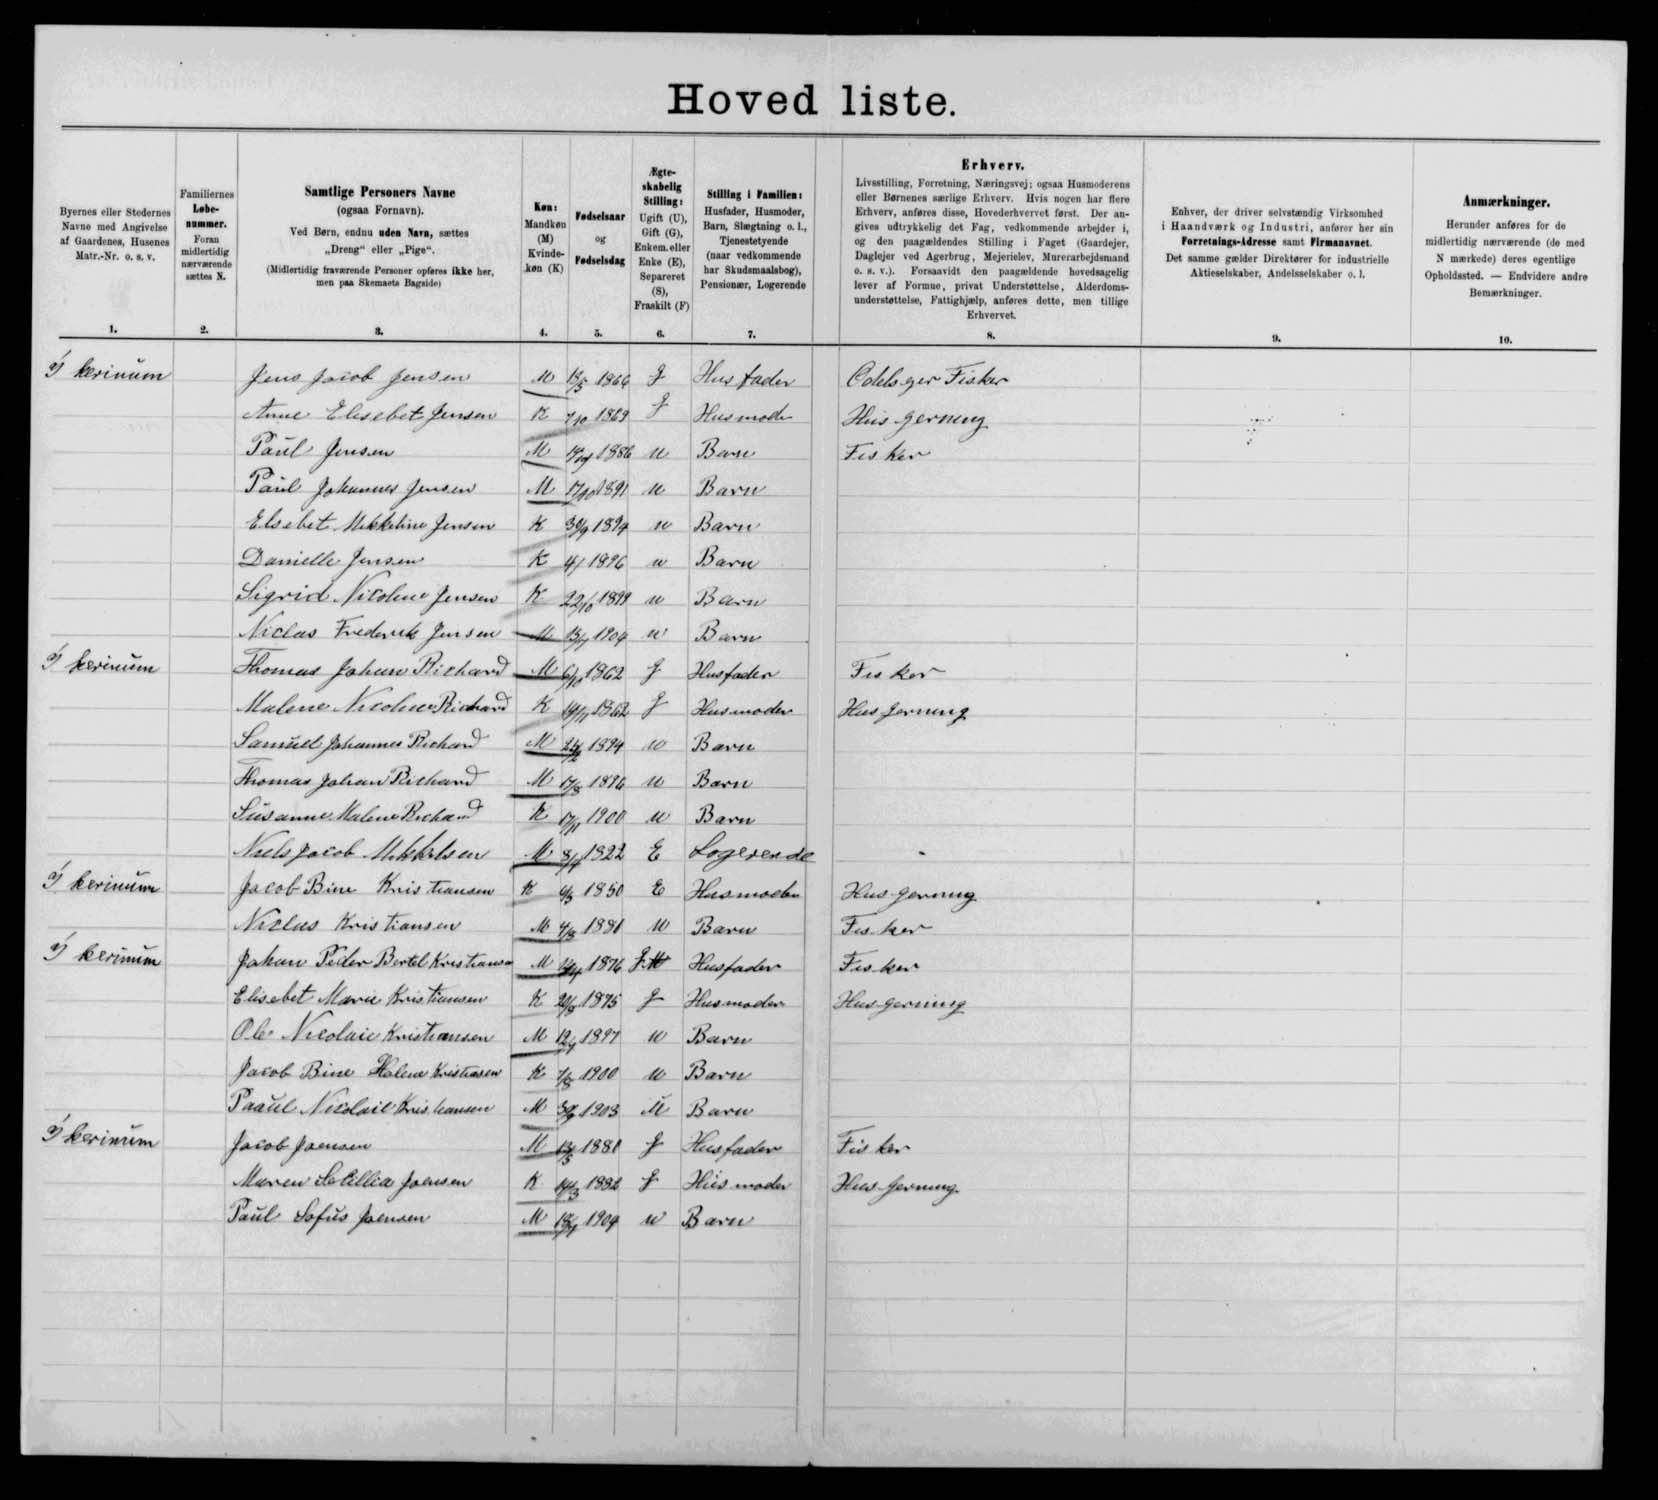 Hoved liste.
Byernes eller Stedernes Navne med Angivelse af Gaardenes, Husenes Matr.-Nr. o. s. v.
1.
Familiernes Løbe-nummer. Foran midlertidig nærværende sættes N.
2.
Samtlige Personers Navne
(ogsaa Fornavn).
Ved Børn, endnu uden Navn, sættes „Dreng“ eller „Pige“.
(Midlertidig fraværende Personer opføres ikke her, men paa Skemaets Bagside)
3.
Køn: Mandkøn (M) Kvinde-køn (K)
4.
Fødselsaar og Fødselsdag
5.
Ægte-skabelig Stilling: Ugift (U), Gift (G), Enkem. eller Enke (E), Separeret (S), Fraskilt (F)
6.
Stilling i Familien: Husfader, Husmoder, Barn, Slægtning o. l., Tjenestetyende (naar vedkommende har Skudsmaalsbog), Pensionær, Logerende
7.
Erhverv.
Livsstilling, Forretning, Næringsvej; ogsaa Husmoderens eller Børnenes særlige Erhverv. Hvis nogen har flere Erhverv, anføres disse, Hovederhvervet først. Der an-gives udtrykkelig det Fag, vedkommende arbejder i, og den paagældendes Stilling i Faget (Gaardejer, Daglejer ved Agerbrug, Mejerielev, Murerarbejdsmand o. s. v.). Forsaavidt den paagældende hovedsagelig lever af Formue, privat Understøttelse, Alderdoms-understøttelse, Fattighjælp, anføres dette, men tillige Erhvervet.
8.
Enhver, der driver selvstændig Virksomhed i Haandværk og Industri, anfører her sin Forretnings-Adresse samt Firmanavnet. Det samme gælder Direktører for industrielle Aktieselskaber, Andelsselskaber o. l.
9.
Anmærkninger.
Herunder anføres for de midlertidig nærværende (de med N mærkede) deres egentlige Opholdssted. — Endvidere andre Bemærkninger.
10.
I kerinum Jens Jacob Jensen M 1866 G Husfader Fisker
Anne Elisebet Jensen K 7/10 1869 G Husmode Hus gerning
Paul Jensen M 1886 u Barn Fisker
Paul Johannes Jensen M 17/10 1891 u Barn
Elsebet Mikkeline Jensen K 30/9 1894 u Barn
Danielle Jensen K 1896 u Barn
Sigrid Nicoline Jensen K 22/10 1899 u Barn
Niclas Frederik Jensen M 1904 u Barn
I kerinum Thomas Johan Richard M 6/10 1862 G Husfader Fisker
Malene Nicoline Richard K 1862 G Husmoder Hus gerning
Samuel Johannes Richard M 1894 u Barn
Thomas Johan Richard M 17/8 1896 u Barn
Susanne Malene Richard K 17/11 1900 u Barn
Niels Jacob Mikkelsen M 1822 E Logerende
I kerinum Jacob Bine Kristiansen K 1850 E Husmoder Hus gerning
Niclas Kristiansen M 1881 u Barn Fisker
I kerinum Johan Peder Bertel Kristiansen M 1876 G Husfader Fisker
Elisebet Marie Kristiansen K 1875 G Husmoder Hus gerning
Ole Nicolaie Kristiansen M 1897 u Barn
Jacob Bine Helene Kristiansen K 7/8 1900 u Barn
Paaul Nicolaie Kristiansen M 1903 u Barn
I kerinum Jacob Joensen M 1881 G Husfader Fisker
Maren Joensen K 1882 G Husmoder Hus gerning
Paul Sofus Joensen M 1904 u Barn